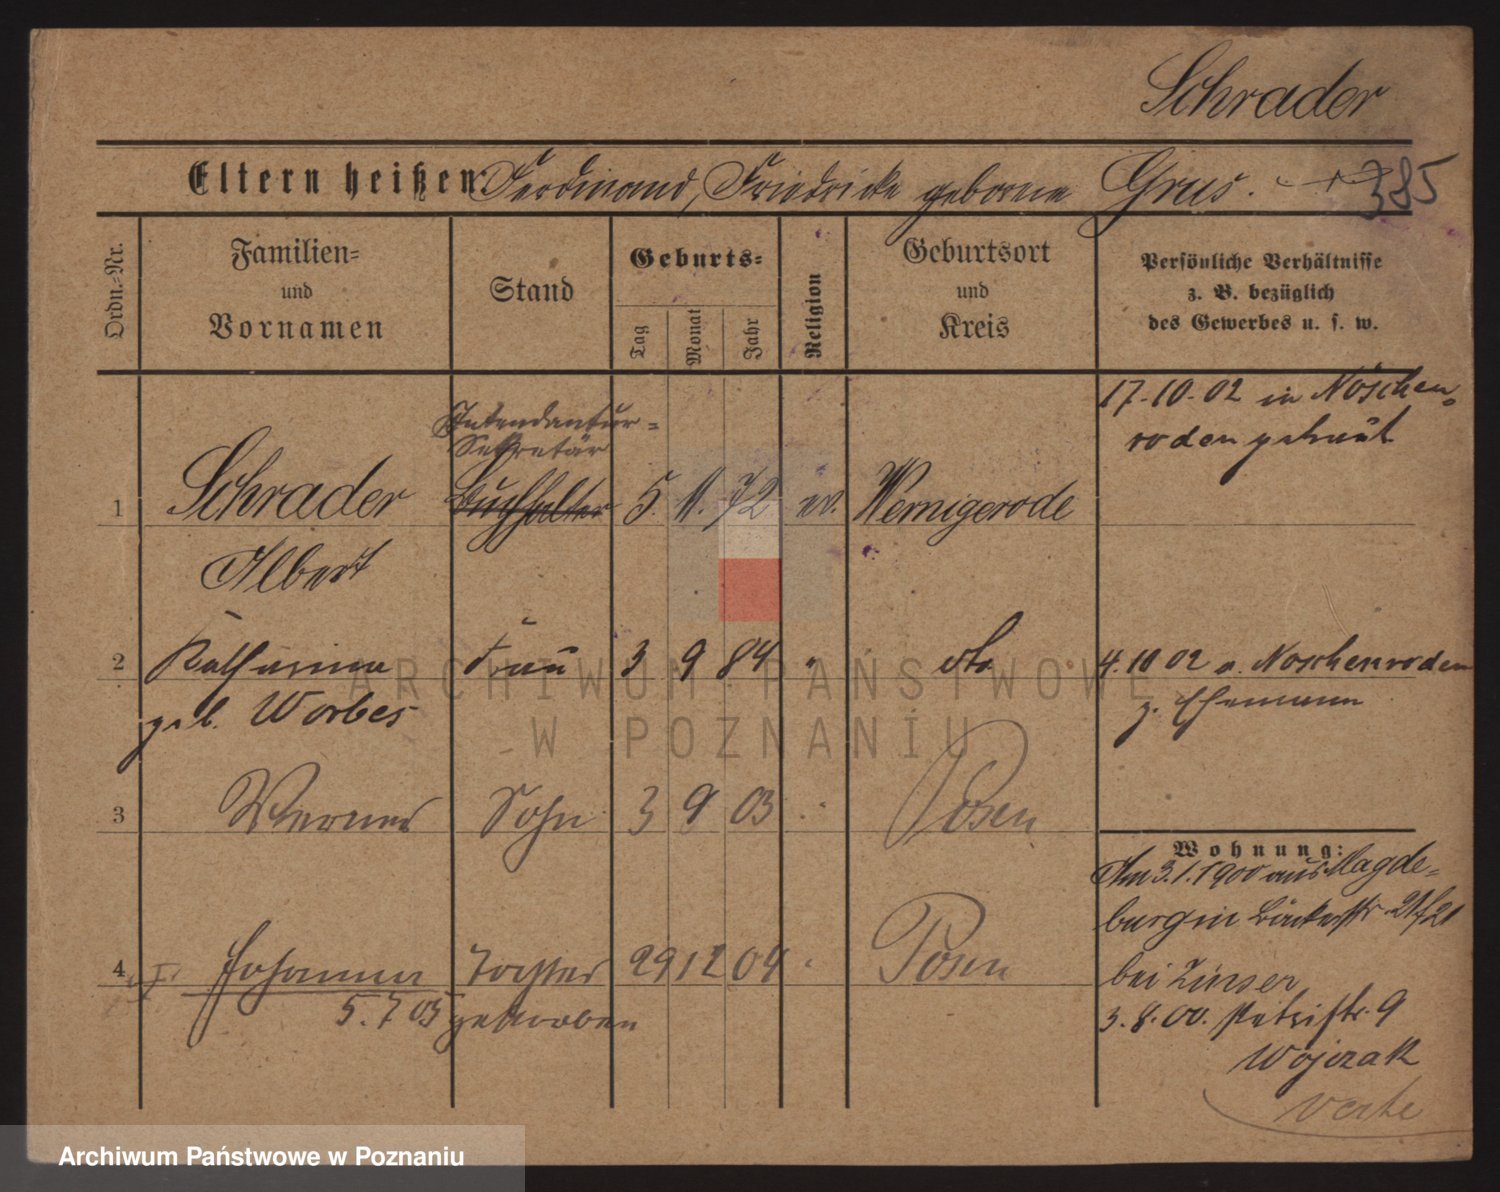 Schrader
Eltern heißen: Ferdinand, Friedricke geborene Grus. 385
Ordn.-Nr.
Familien-
und
Vornamen
Stand
Geburts-
Tag
Monat
Jahr
Religion
Geburtsort
und
Kreis
Persönliche Verhältnisse
z. B. bezüglich
des Gewerbes u. s. w.
17.10.02 in Nöschen-
roden getraut
Intendantur-
Sekretär
1 Schrader Buchhalter 5. 11. 72 ev. Wernigerode
Albert
2 Katharina Frau 3 9 84 " dto 4.10 02 a. Noschenroden
geb. Worbes z. Ehemann
3 Werner Sohn 3 9 03 Posen
Wohnung:
Am 3.1.1900 aus Magde-
burg in 21/21
4 Johanna Tochter 29 12 04 Posen
bei Zinser
5. 7 05 gestorben
3.8.00. Petristr. 9
Wojczak
verte
ARCHIWUM PAŃSTWOWE
W POZNANIU
Archiwum Państwowe w Poznaniu